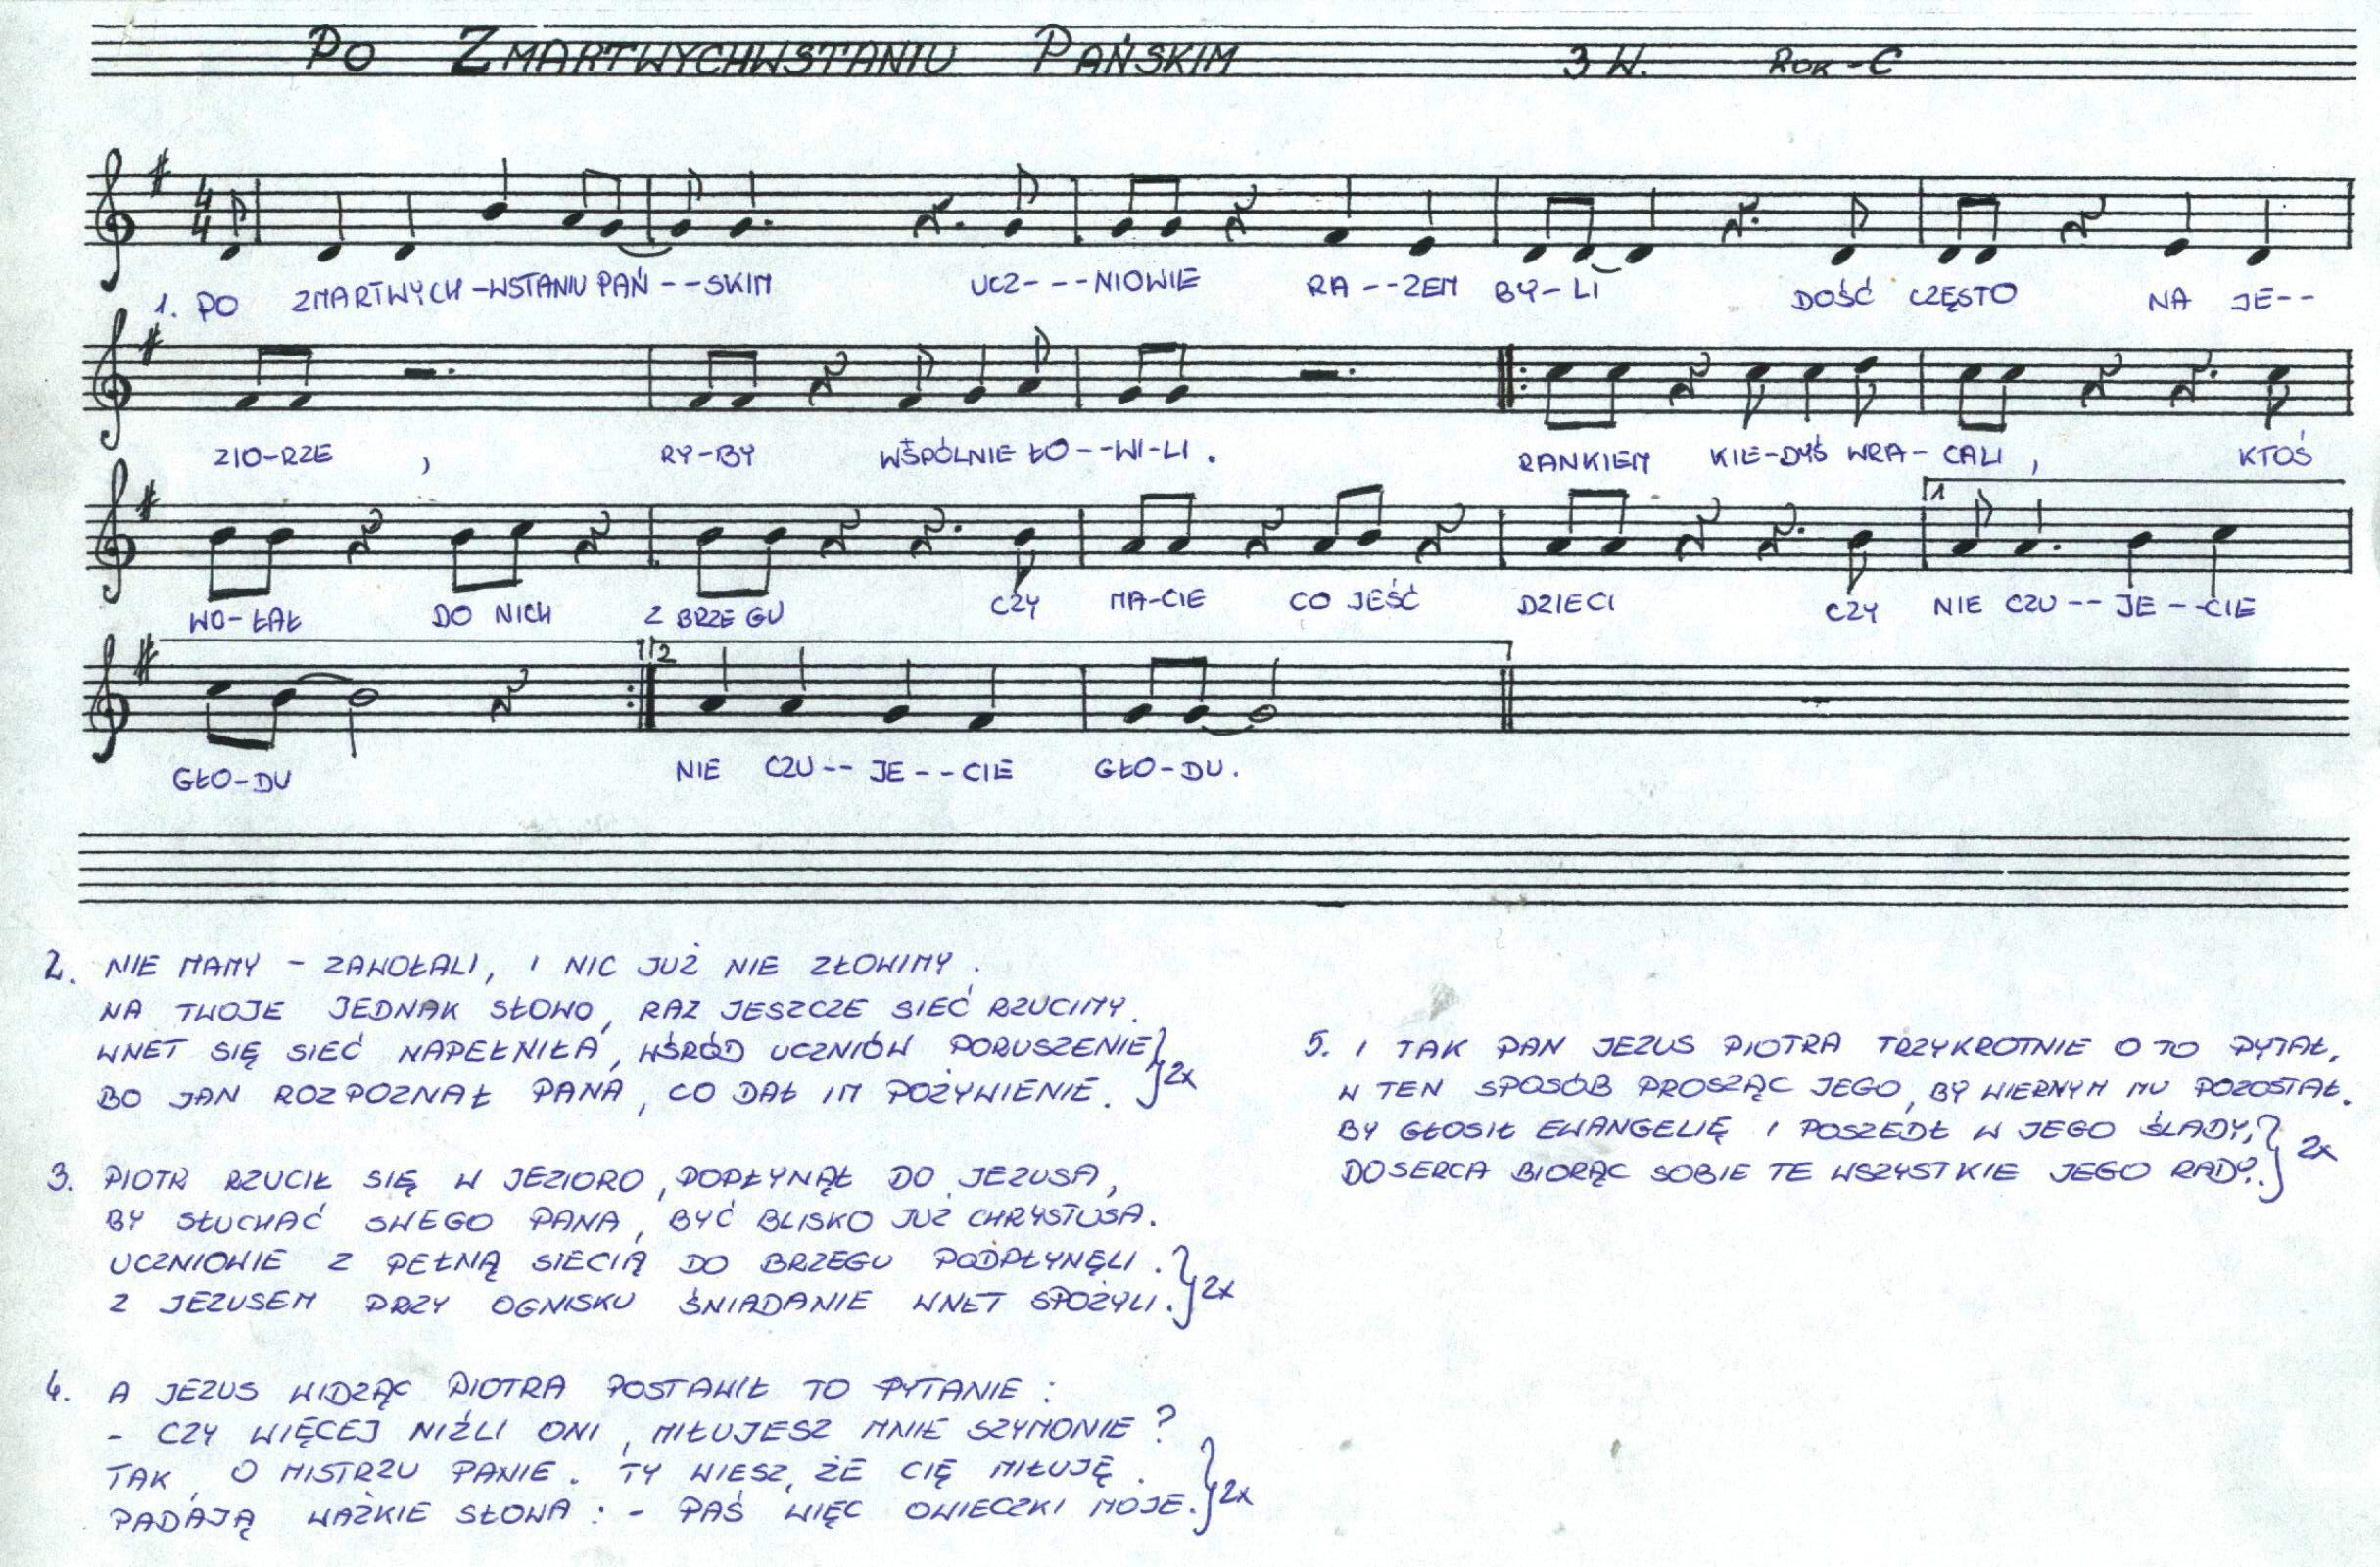 PO ZMARTWYCHWSTANIU PAŃSKIM 3 W. ROK-C
4
4
1. PO ZMARTWYCH-WSTANIU PAŃ--SKIM UCZ---NIOWIE RA--ZEM BY-LI DOŚĆ CZĘSTO NA JE--
ZIO-RZE , RY-BY WŚPÓLNIE ŁO--WI-LI. RANKIEM KIE-DYŚ WRA-CALI, KTOŚ
1
WO-ŁAŁ DO NICH Z BRZEGU CZY MA-CIE CO JEŚĆ DZIECI CZY NIE CZU--JE--CIE
2
GŁO-DU NIE CZU--JE--CIE GŁO-DU.
2. NIE MAMY - ZAWOŁALI, I NIC JUŻ NIE ZŁOWIMY.
NA TWOJE JEDNAK SŁOWO, RAZ JESZCZE SIEĆ RZUCIMY.
WNET SIĘ SIEĆ NAPEŁNIŁA, WŚRÓD UCZNIÓW PORUSZENIE
BO JAN ROZPOZNAŁ PANA, CO DAŁ IM POŻYWIENIE. } 2x
3. PIOTR RZUCIŁ SIĘ W JEZIORO, POPŁYNĄŁ DO JEZUSA,
BY SŁUCHAĆ SWEGO PANA, BYĆ BLISKO JUŻ CHRYSTUSA.
UCZNIOWIE Z PEŁNĄ SIECIĄ DO BRZEGU PODPŁYNĘLI.
Z JEZUSEM PRZY OGNISKU ŚNIADANIE WNET SPOŻYLI. } 2x
4. A JEZUS WIDZĄC PIOTRA POSTAWIŁ TO PYTANIE:
- CZY WIĘCEJ NIŹLI ONI, MIŁUJESZ MNIE SZYMONIE?
TAK, O MISTRZU PANIE. TY WIESZ, ŻE CIĘ MIŁUJĘ.
PADAJĄ WAŻKIE SŁOWA: - PAŚ WIĘC OWIECZKI MOJE. } 2x
5. I TAK PAN JEZUS PIOTRA TRZYKROTNIE O TO PYTAŁ,
W TEN SPOSÓB PROSZĄC JEGO, BY WIERNYM MU POZOSTAŁ.
BY GŁOSIŁ EWANGELIĘ I POSZEDŁ W JEGO ŚLADY,
DO SERCA BIORĄC SOBIE TE WSZYSTKIE JEGO RADY. } 2x